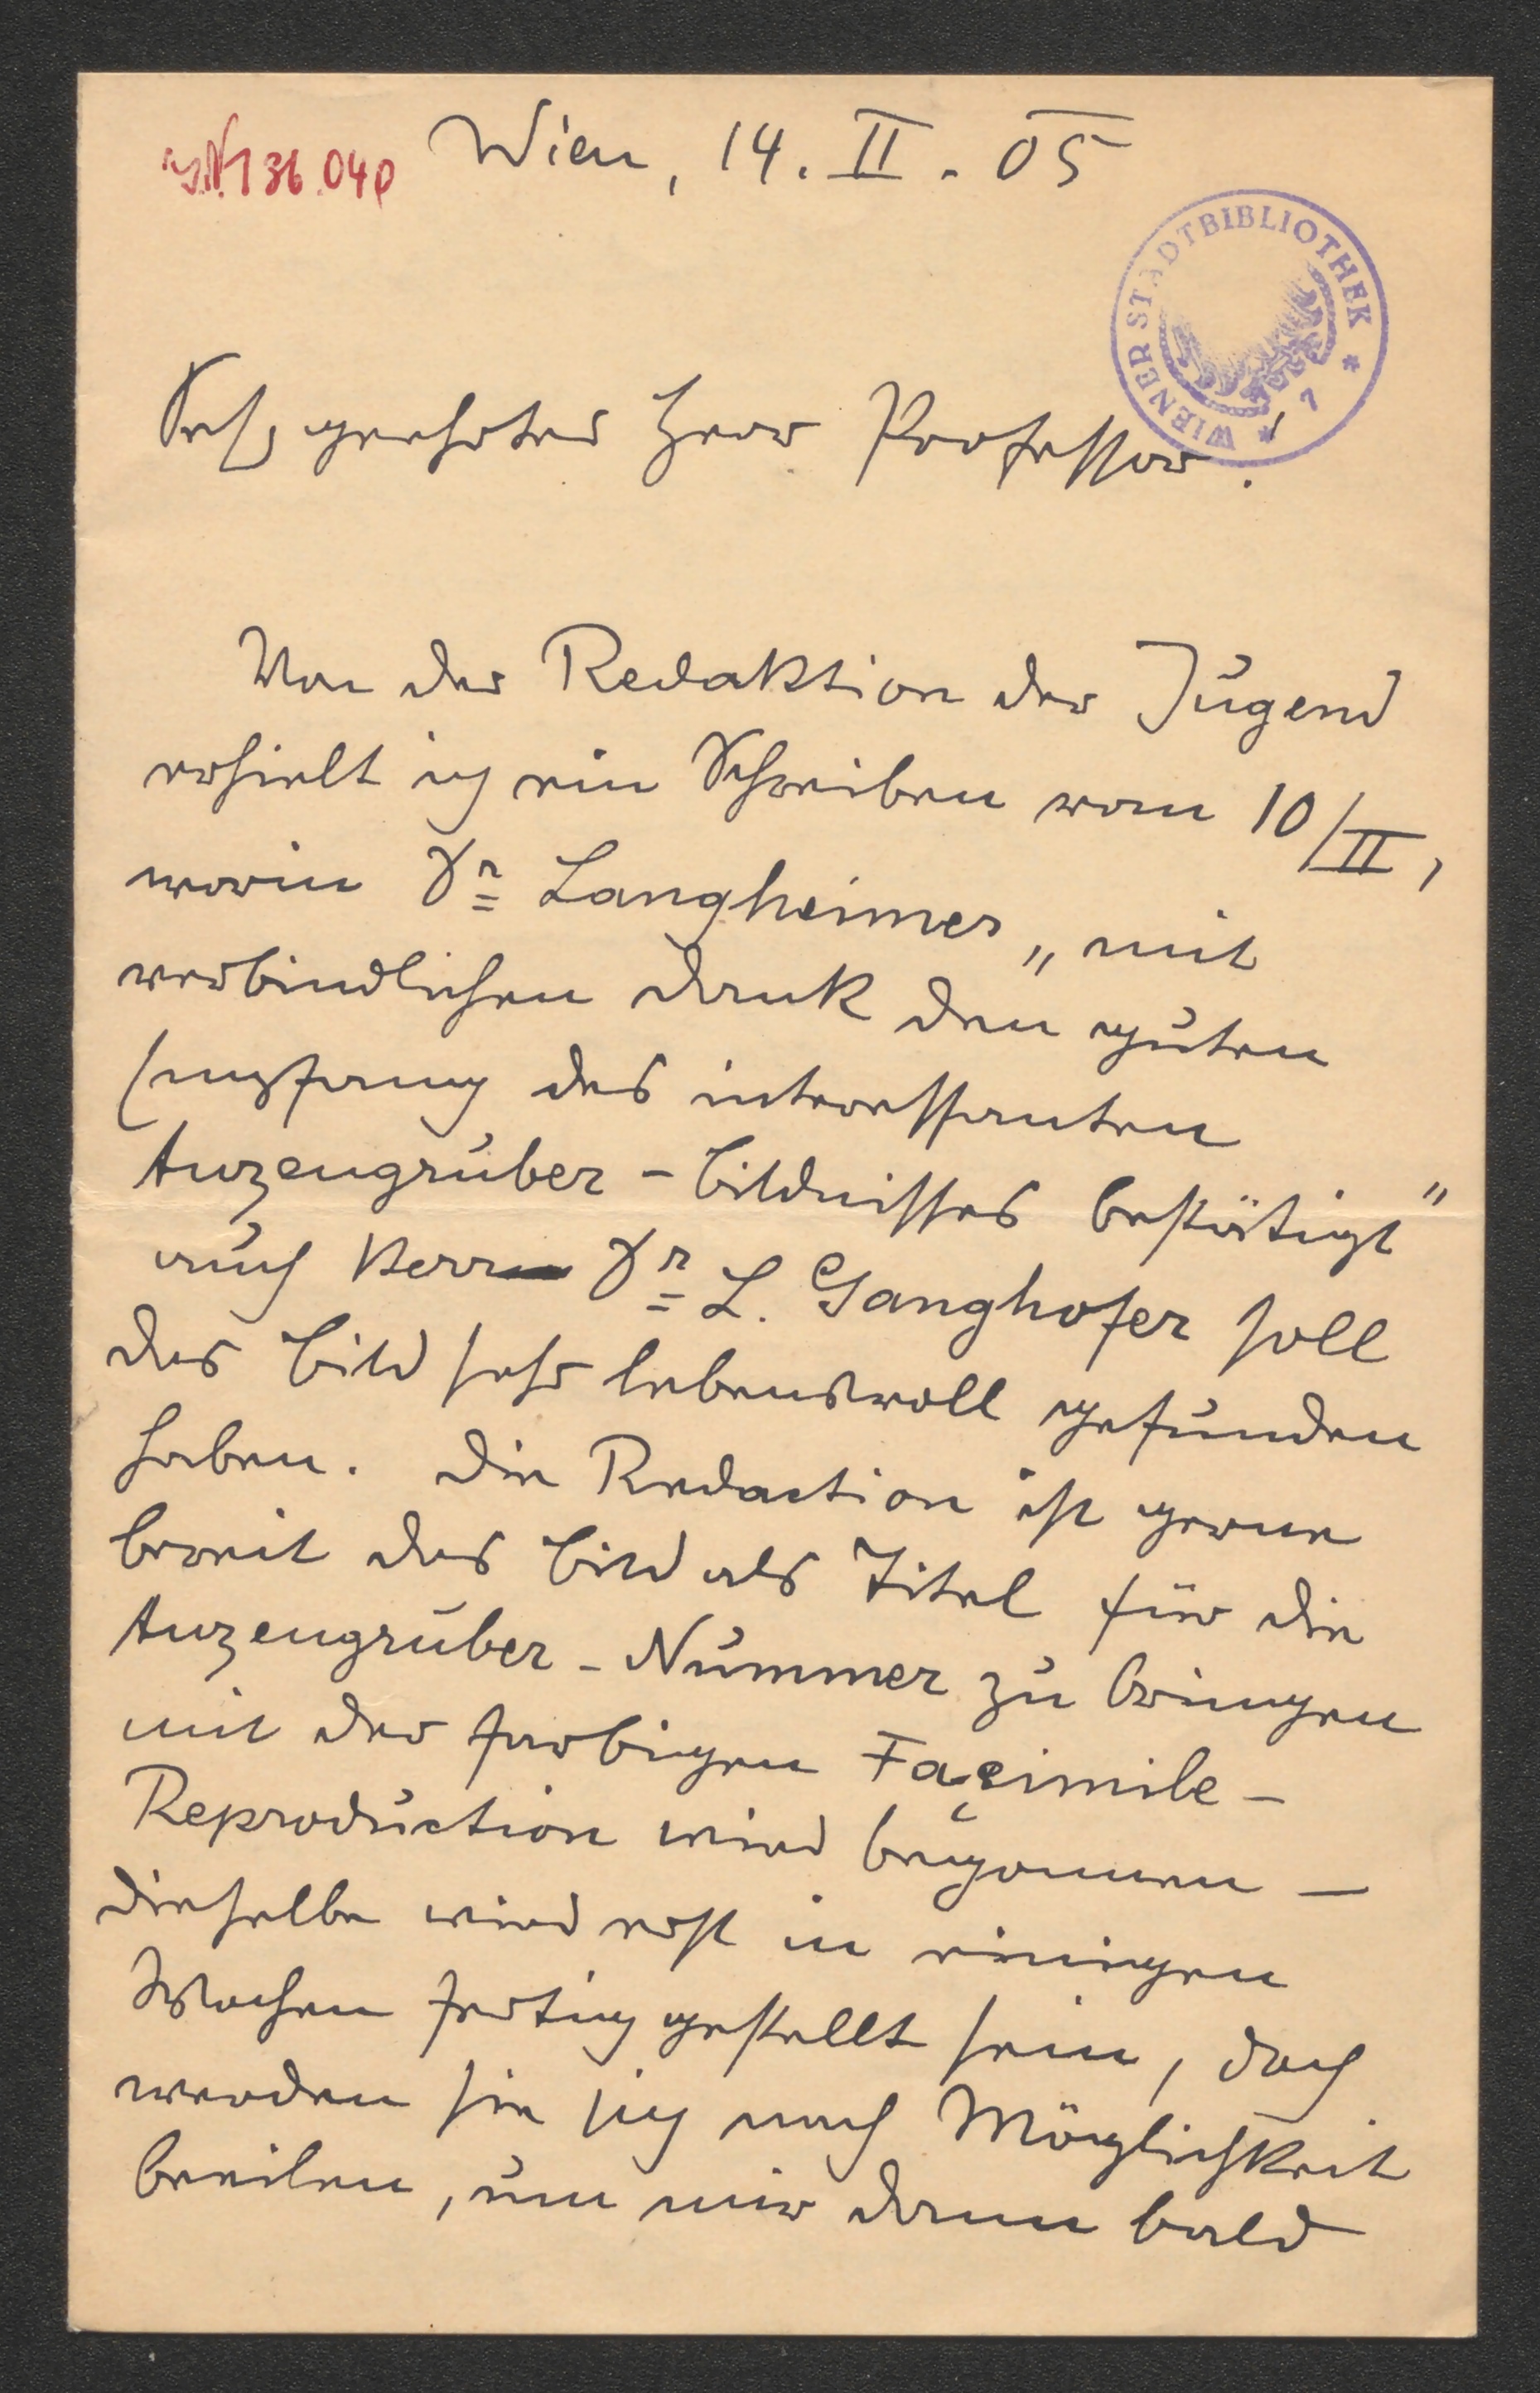 J.N. 136.040
Wien, 14. II. 05
WIENER STADTBIBLIOTHEK * 7 *
Sehr geehrter Herr Professor!
Von der Redaktion der Jugend
erhielt ich ein Schreiben vom 10/II,
worin Dr Langheimer „mit
verbindlichen Dank den guten
Empfang des interessanten
Anzengruber-Bildnisses bestätigt"
auch Herr Dr L. Ganghofer soll
das Bild sehr lebensvoll gefunden
haben. Die Redaction ist gerne
bereit das Bild als Titel für die
Anzengruber-Nummer zu bringen
mit der farbigen Facsimile-
Reproduction wird begonnen —
dieselbe wird erst in einigen
Wochen fertig gestellt sein, doch
werden sie sich nach Möglichkeit
beeilen, um mir dann bald